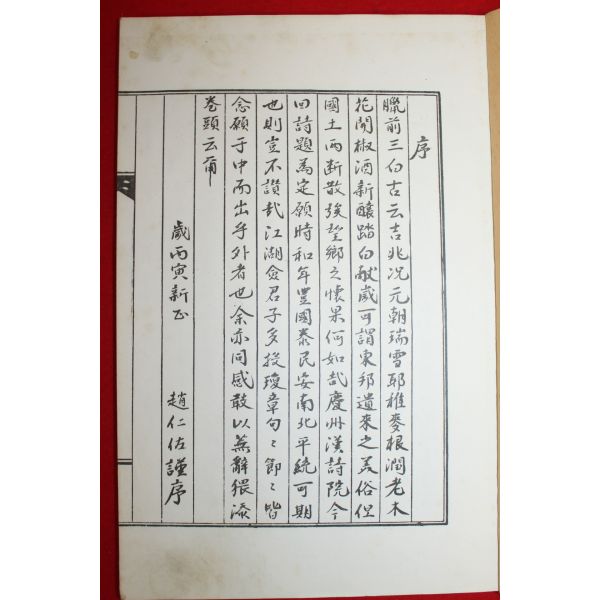 序
臘前三白古云吉兆况元朝瑞雪耶稚麥根潤老木
花開椒酒新釀踏白献歲可謂東邦遺來之美俗但
國土両断散族望鄉之懷果何如哉慶州漢詩院今
回詩題為定願時和年豊國泰民安南北平統可期
也則豈不讃哉江湖僉君子多投瓊章句〻節〻皆
念願于中而出乎外者也余亦同感敢以蕪辭猥添
巻頭云爾
歲丙寅新正
趙仁佐謹序